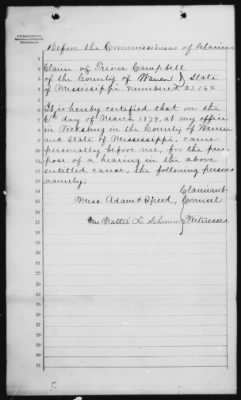 Before the Commissioners of Claims
Claim of Campbell
of the County of Warren & State
of Mississippi numbered 21,164
It is hereby certified that on the
6th day of March 1877, at my office
in Vicksburg in the County of Warren
and State of Mississippi, came
personally before me, for the pur-
pose of a hearing in the above
entitled cause, the following persons
namely:
Claimant
Mess. Adam & Speed, Counsel
Mrs Mattie L. Witnesses